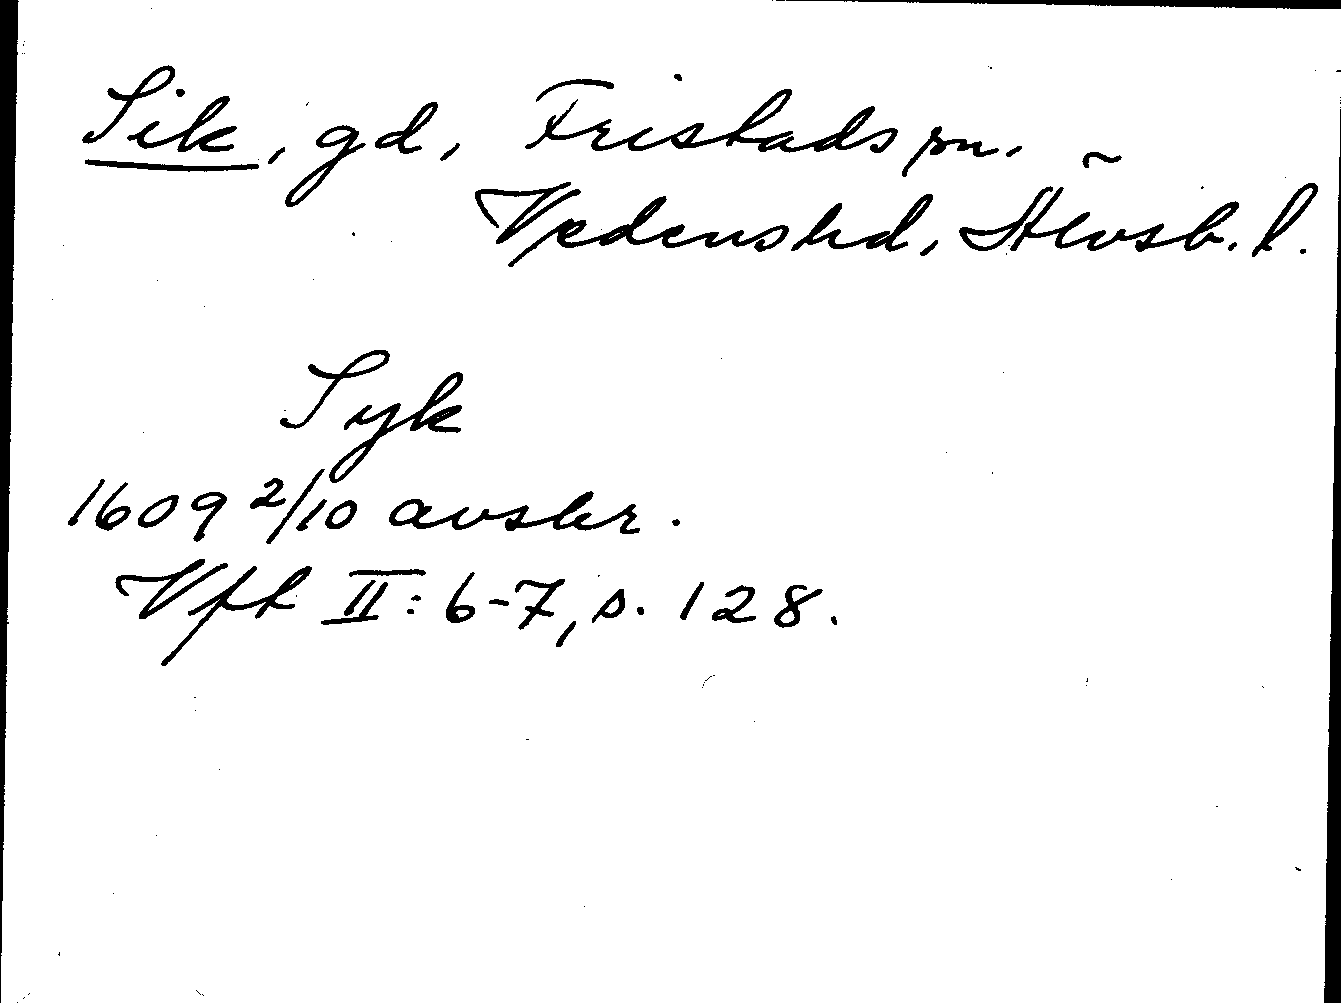 Sik, gd, Fristads sn. ~
Vedens hd, Älvsb. l.
Syk
1609 2/10 avskr.
Vfh II: 6-7, s. 128.